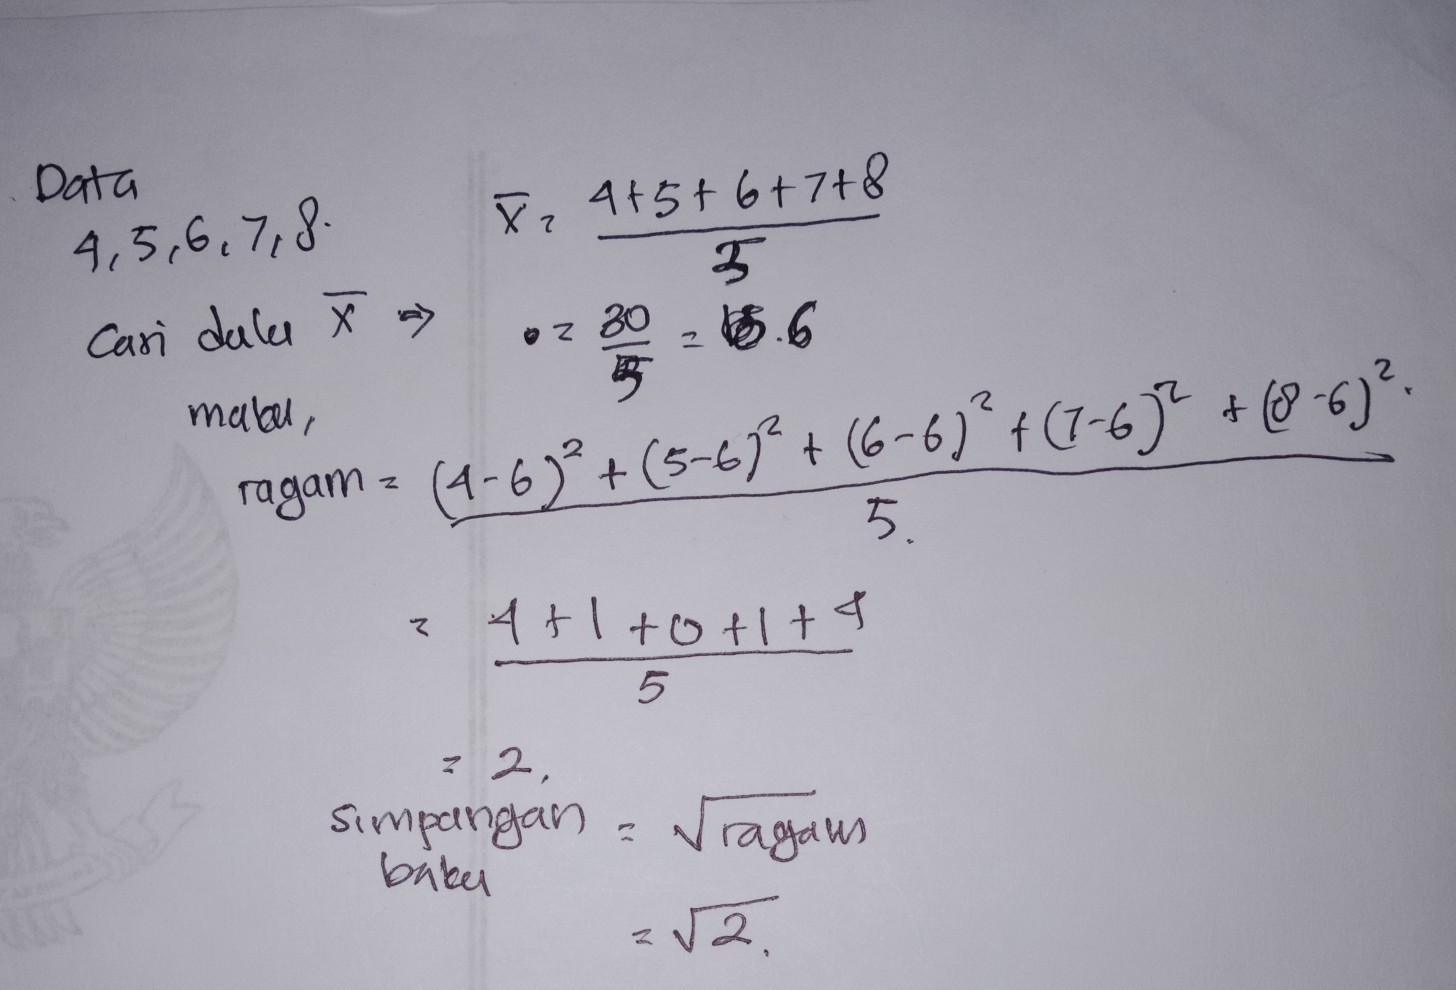 Data
4, 5, 6, 7, 8.
x̄ = 4+5+6+7+8 / 5
Cari dulu x̄ ⇒
= 30/5 = 6
maka,
ragam = (4-6)² + (5-6)² + (6-6)² + (7-6)² + (8-6)² / 5.
= 4+1+0+1+4 / 5
= 2,
simpangan baku = √ragam
= √2.